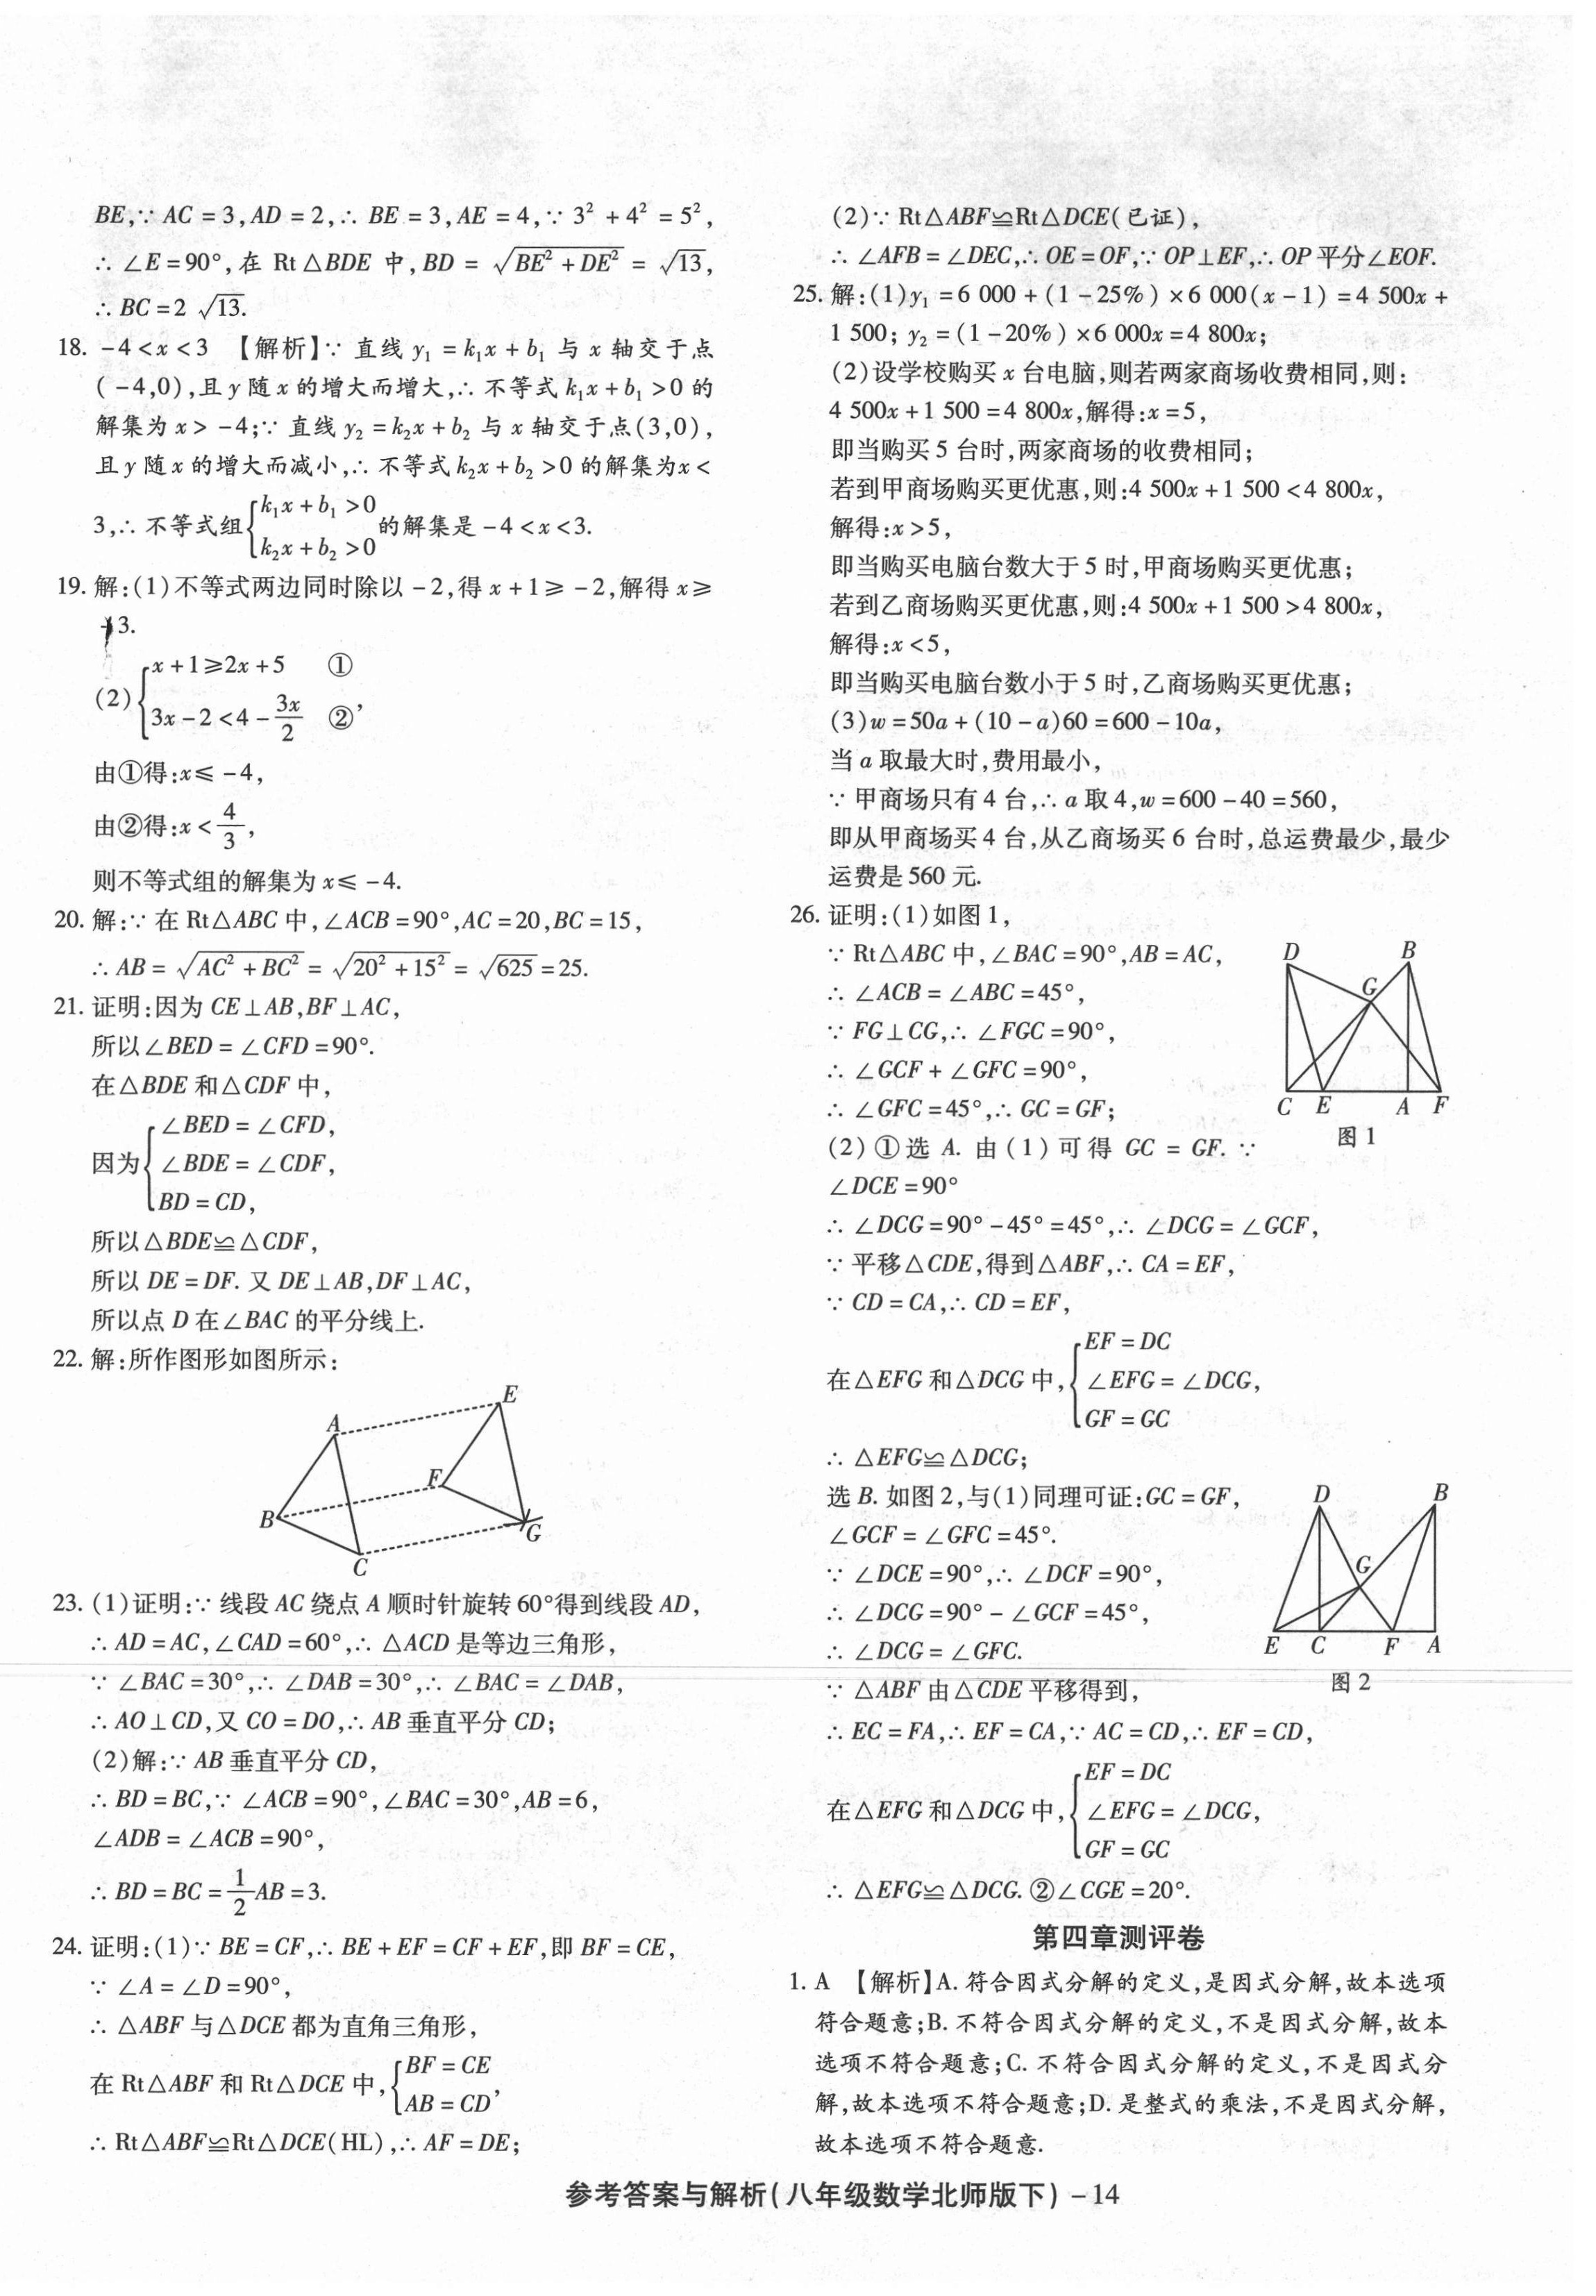 BE,∵ AC = 3,AD = 2,∴ BE = 3,AE = 4,∵ 3² + 4² = 5²,
∴ ∠E = 90°,在 Rt△BDE 中,BD = √(BE² + DE²) = √13,
∴ BC = 2√13.
18. -4 < x < 3 【解析】∵ 直线 y₁ = k₁x + b₁ 与 x 轴交于点
(-4,0),且 y 随 x 的增大而增大,∴ 不等式 k₁x + b₁ > 0 的
解集为 x > -4;∵ 直线 y₂ = k₂x + b₂ 与 x 轴交于点(3,0),
且 y 随 x 的增大而减小,∴ 不等式 k₂x + b₂ > 0 的解集为 x <
3,∴ 不等式组{k₁x + b₁ > 0
k₂x + b₂ > 0 的解集是 -4 < x < 3.
19. 解:(1)不等式两边同时除以 -2,得 x + 1 ≥ -2,解得 x ≥
-3.
(2){x + 1 ≥ 2x + 5 ①
3x - 2 < 4 - 3x/2 ②,
由①得:x ≤ -4,
由②得:x < 4/3,
则不等式组的解集为 x ≤ -4.
20. 解:∵ 在 Rt△ABC 中,∠ACB = 90°,AC = 20,BC = 15,
∴ AB = √(AC² + BC²) = √(20² + 15²) = √625 = 25.
21. 证明:因为 CE⊥AB,BF⊥AC,
所以∠BED = ∠CFD = 90°.
在△BDE 和△CDF 中,
因为{∠BED = ∠CFD,
∠BDE = ∠CDF,
BD = CD,
所以△BDE≌△CDF,
所以 DE = DF. 又 DE⊥AB,DF⊥AC,
所以点 D 在∠BAC 的平分线上.
22. 解:所作图形如图所示:
E
A
F
B
G
C
23. (1)证明:∵ 线段 AC 绕点 A 顺时针旋转 60°得到线段 AD,
∴ AD = AC,∠CAD = 60°,∴ △ACD 是等边三角形,
∵ ∠BAC = 30°,∴ ∠DAB = 30°,∴ ∠BAC = ∠DAB,
∴ AO⊥CD,又 CO = DO,∴ AB 垂直平分 CD;
(2)解:∵ AB 垂直平分 CD,
∴ BD = BC,∵ ∠ACB = 90°,∠BAC = 30°,AB = 6,
∠ADB = ∠ACB = 90°,
∴ BD = BC = 1/2 AB = 3.
24. 证明:(1)∵ BE = CF,∴ BE + EF = CF + EF,即 BF = CE,
∵ ∠A = ∠D = 90°,
∴ △ABF 与△DCE 都为直角三角形,
在 Rt△ABF 和 Rt△DCE 中,{BF = CE
AB = CD,
∴ Rt△ABF≌Rt△DCE(HL),∴ AF = DE;
(2)∵ Rt△ABF≌Rt△DCE(已证),
∴ ∠AFB = ∠DEC,∴ OE = OF,∵ OP⊥EF,∴ OP 平分∠EOF.
25. 解:(1)y₁ = 6 000 + (1 - 25%) × 6 000(x - 1) = 4 500x +
1 500; y₂ = (1 - 20%) × 6 000x = 4 800x;
(2)设学校购买 x 台电脑,则若两家商场收费相同,则:
4 500x + 1 500 = 4 800x,解得:x = 5,
即当购买 5 台时,两家商场的收费相同;
若到甲商场购买更优惠,则:4 500x + 1 500 < 4 800x,
解得:x > 5,
即当购买电脑台数大于 5 时,甲商场购买更优惠;
若到乙商场购买更优惠,则:4 500x + 1 500 > 4 800x,
解得:x < 5,
即当购买电脑台数小于 5 时,乙商场购买更优惠;
(3)w = 50a + (10 - a)60 = 600 - 10a,
当 a 取最大时,费用最小,
∵ 甲商场只有 4 台,∴ a 取 4,w = 600 - 40 = 560,
即从甲商场买 4 台,从乙商场买 6 台时,总运费最少,最少
运费是 560 元.
26. 证明:(1)如图 1,
∵ Rt△ABC 中,∠BAC = 90°,AB = AC,
∴ ∠ACB = ∠ABC = 45°,
∵ FG⊥CG,∴ ∠FGC = 90°,
∴ ∠GCF + ∠GFC = 90°,
∴ ∠GFC = 45°,∴ GC = GF;
D B
G
C E A F
图 1
(2) ①选 A. 由(1)可得 GC = GF. ∵
∠DCE = 90°
∴ ∠DCG = 90° - 45° = 45°,∴ ∠DCG = ∠GCF,
∵ 平移△CDE,得到△ABF,∴ CA = EF,
∵ CD = CA,∴ CD = EF,
在△EFG 和△DCG 中,{EF = DC
∠EFG = ∠DCG,
GF = GC
∴ △EFG≌△DCG;
选 B. 如图 2,与(1)同理可证:GC = GF,
∠GCF = ∠GFC = 45°.
∵ ∠DCE = 90°,∴ ∠DCF = 90°,
∴ ∠DCG = 90° - ∠GCF = 45°,
∴ ∠DCG = ∠GFC.
D B
G
E C F A
图 2
∵ △ABF 由△CDE 平移得到,
∴ EC = FA,∴ EF = CA,∵ AC = CD,∴ EF = CD,
在△EFG 和△DCG 中,{EF = DC
∠EFG = ∠DCG,
GF = GC
∴ △EFG≌△DCG. ②∠CGE = 20°.
第四章测评卷
1. A 【解析】A. 符合因式分解的定义,是因式分解,故本选项
符合题意;B. 不符合因式分解的定义,不是因式分解,故本
选项不符合题意;C. 不符合因式分解的定义,不是因式分
解,故本选项不符合题意;D. 是整式的乘法,不是因式分解,
故本选项不符合题意.
参考答案与解析(八年级数学北师版下) - 14